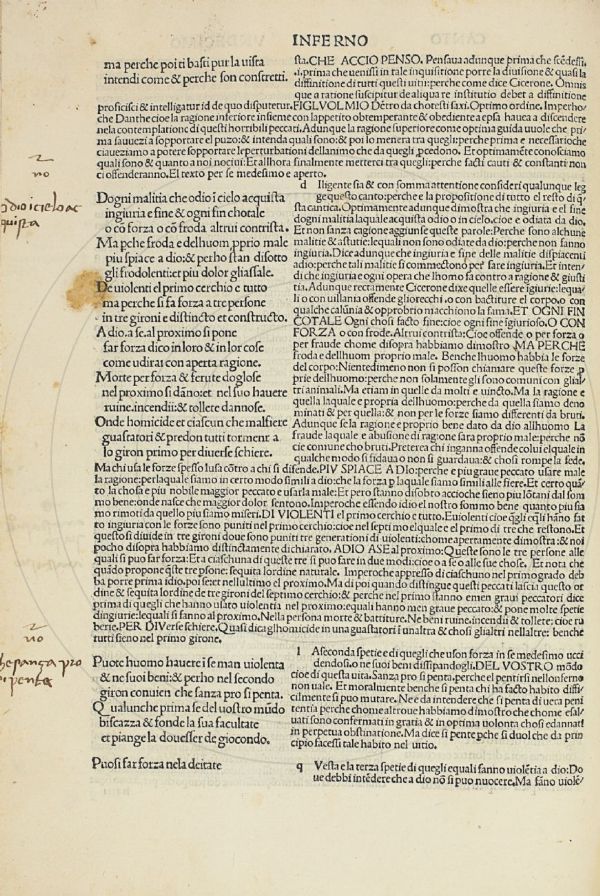 INFERNO
ma perche poi ti basti pur la uista
intendi come & perche son constretti.
sta. CHE ACCIO PENSO. Pensaua adunque prima che scẽdessi.
i. prima che uenissi in tale inquisitione porre la diuisione & quasi la
diffinitione di tutti questi uitii: perche come dice Cicerone. Omnis
que a ratione suscipitur de aliqua re institutio debet a diffinitione
proficisci & intelligatur id de quo disputetur. FIGLVOL MIO Dẽtro da chotesti sassi. Optimo ordine. Imperho
che Danthe cioe la ragione inferiore insieme con lappetito obtemperante & obediente a epsa hauea a discendere
nela contemplatione di questi horribili peccati. Adunque la ragione superiore come optima guida uuole che pri/
ma sauuezi a sopportare el puzo: & intenda quali sono: & poi lo menera tra quegli: perche prima e necessario che
ci aueziamo a potere sopportare le perturbationi dellanimo che da quegli ꝓcedono. Et optimamẽte conosciamo
quali sono & quanto a noi nociui: Et allhora finalmente metterci tra quegli: perche facti cauti & constanti non
ci offenderanno. El texto per se medesimo e aperto.
no
odio i cielo ac
quista
Dogni malitia che odio i cielo acquista
ingiuria e fine & ogni fin chotale
o cõ forza o cõ froda altrui contrista.
Ma ꝑche froda e dellhuom ꝓprio male
piu spiace a dio: & perho stan disotto
gli frodolenti: et piu dolor gliassale.
De uiolenti el primo cerchio e tutto
ma perche si fa forza a tre persone
in tre gironi e distincto et constructo.
A dio. a se. al proximo si pone
far forza dico in loro & in lor cose
come udirai con aperta ragione.
Morte per forza & ferute doglose
nel proximo si dãno: et nel suo hauere
ruine. incendii: & tollete dannose.
Onde homicide et ciascun che malfiere
guastatori & predon tutti tormenta
lo giron primo per diuerse schiere.
d Iligente sia & con somma attentione consideri qualunque leg
ge questo canto: perche e la propositione di tutto el resto di q̃
sta cantica. Optimamente adunque dimostra che ingiuria e el fine
dogni malitia laquale acquista odio o in cielo. cioe e odiata da dio.
Et non sanza cagione aggiunse queste parole: Perche sono alchune
malitie & astutie: lequali non sono odiate da dio: perche non fanno
ingiuria. Dice adunque che ingiuria e fine delle malitie dispiacenti
adio: perche tali malitie si commettono per fare ingiuria. Et inten/
di che ingiuria e ogni opera che lhomo fa contro a ragione & giusti
tia. Adunque rectamente Cicerone dixe quelle essere igiurie: lequa/
li o con uillania offende gliorecchi. o con battiture el corpo. o con
qualche calũnia & opprobrio macchiono la fama. ET OGNI FIN
COTALE Ogni chosi facto fine: cioe ogni fine igiurioso. O CON
FORZA o con frode. Altrui contrista: Cioe offende o per forza o
per fraude chome disopra habbiamo dimostro. MA PERCHE
froda e dellhuom proprio male. Benche lhuomo habbia le forze
del corpo: Nientedimeno non si possõn chiamare queste forze ꝓ
prie dellhuomo: perche non solamente gli sono comuni con glial
tri animali. Ma etiam in quelle da molti e uincto: Ma la ragione e
quella laquale e propria dellhuomo: perche da quella siamo deno
minati & per quella: & non per le forze siamo differenti da bruti.
Adunque se la ragione e proprio bene dato da dio allhuomo La
fraude laquale e abusione di ragione sara proprio male: perche nõ
cie comune cho bruti. Preterea chi inganna offende colui elquale in
qualche modo si fidaua o non si guardaua: & chosi rompe la fede.
Ma chi usa le forze spesso lusa cõtro a chi si difende. PIV SPIACE A DIo: perche e piu graue peccato usare male
la ragione: per laquale siamo in certo modo simili a dio: che la forza ꝑ laquale siamo simili alle fiere. Et certo quã
to la chosa e piu nobile maggior peccato e usarla male: Et pero stanno disobto accioche sieno piu lõtani dal som
mo bene: onde nasce che maggior dolor sentono. Imperoche essendo idio el nostro sommo bene quanto piu sia
mo rimoti da quello piu siamo miseri. DI VIOLENTI el primo cerchio e tutto. E uiolenti cioe q̃gli q̃li hãno fat
to ingiuria con le forze sono puniti nel primo cerchio: cioe nel septimo elquale e el primo di tre che restono. Et
questo si diuide in tre gironi doue sono puniti tre generationi di uiolenti: chome apertamente dimostra: & noi
pocho disopra habbiamo distinctamente dichiarato. A DIO A SE al proximo: Queste sono le tre persone alle
quali si puo far forza: Et a ciaschuna di queste tre si puo fare in due modi: cioe o a se o alle sue chose. Et nota che
quãdo propone q̃ste tre ꝑsone: sequita lordine naturale. Imperoche appresso di ciaschuno nel primo grado deb
ba porre prima idio. poi se: et nellultimo el proximo. Ma di poi quando distingue questi peccati lascia questo or
dine & sequita lordine de tre gironi del septimo cerchio: & perche nel primo stanno e men graui peccatori dice
prima di quegli che hanno usato uiolentia nel proximo: equali hanno men graue peccato: & pone molte spetie
dingiurie: lequali si fanno al proximo. Nella persona morte & battiture. Ne beni ruine. incendii & tollete: cioe ru
berie. PER DIVerse schiere. Quasi dica glhomicide in una guastatori ĩ unaltra & chosi glialtri nellaltre: benche
tutti sieno nel primo girone.
no
che sanza pro
si penta
Puote huomo hauere ĩ se man uiolenta
& ne suoi beni: & perho nel secondo
giron conuien che sanza pro si penta.
Qualunche priua se del uostro mũdo
biscazza & fonde la sua facultate
et piange la doue esser de giocondo.
l A seconda spetie e di quegli che uson forza in se medesimo uci
dendosi. o ne suoi beni dissipandogli. DEL VOSTRO mõdo
cioe di questa uita. Sanza pro si penta. perche el pentirsi nellonferno
non uale. Et moralmente benche si penta chi ha facto habito diffi/
cilmente si puo mutare. Ne e da intendere che si penta di uera peni
tentia perche chome altroue habbiamo dimostro che chome esal/
uati sono confermati in gratia & in optima uolonta chosi edannati
in perpetua obstinatione. Ma dice si pente ꝑche si duol che da prin
cipio facessi tale habito nel uitio.
Puosi far forza nela deitate
q Vesta e la terza spetie di quegli equali fanno uiolẽtia a dio: Do
ue debbi intẽdere che a dio nõ si puo nuocere. Ma fãno uiolẽ/